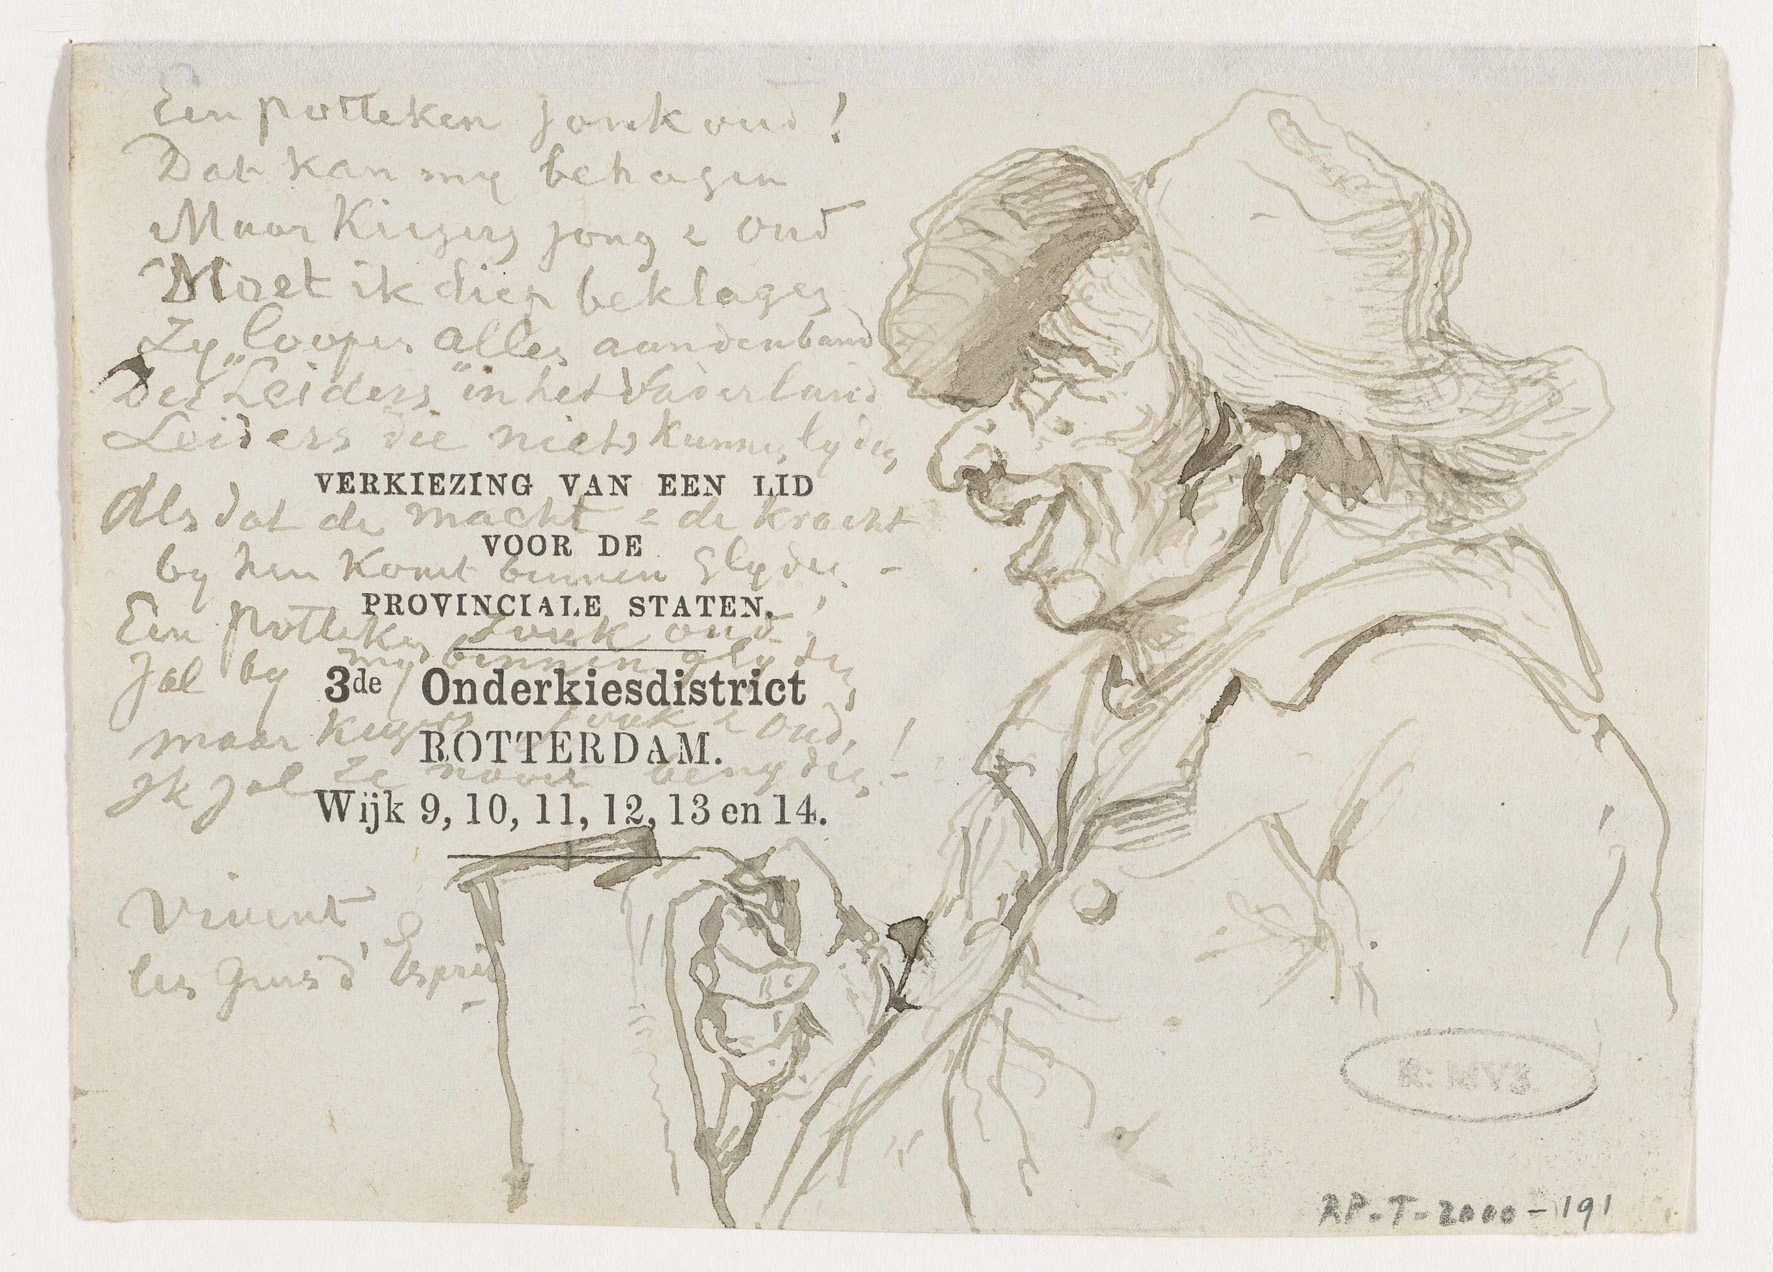 Een potteken jonk oud!
Dat kan my behagen
Maar Kiezers jong & oud
Moet ik diep beklagen
Zy loopen allen aan den band
Der „Leiders" in het Vaderland
Leiders die niets kunnen lyden
VERKIEZING VAN EEN LID
Als dat de macht & de kracht
VOOR DE
by hen komt binnen glyden -
PROVINCIALE STATEN.
Een potteken jonk oud!
Zal by my binnen glyden
3de Onderkiesdistrict
maar kiezers jonk & oud!
ROTTERDAM.
ik zal ze nooit benyden -
Wijk 9, 10, 11, 12, 13 en 14.
Vivent
les gens d'Esprit
R: MVS.
RP-T-2000-191